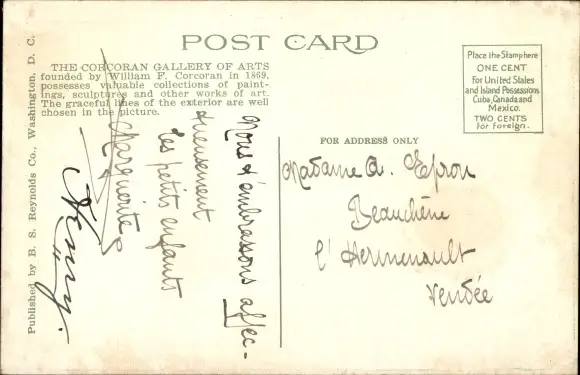 POST CARD
THE CORCORAN GALLERY OF ARTS
founded by William F. Corcoran in 1869,
possesses valuable collections of paint-
ings, sculptures and other works of art.
The graceful lines of the exterior are well
chosen in the picture.
Published by B. S. Reynolds Co., Washington, D. C.
Place the Stamp here
ONE CENT
For United States
and Island Possessions
Cuba, Canada and
Mexico.
TWO CENTS
for foreign.
FOR ADDRESS ONLY
Madame A.
Beauchêne
l'Hermenault
Vendée
Nous t'embrassons affec-
tueusement
les petits enfants
Marguerite
Henry.